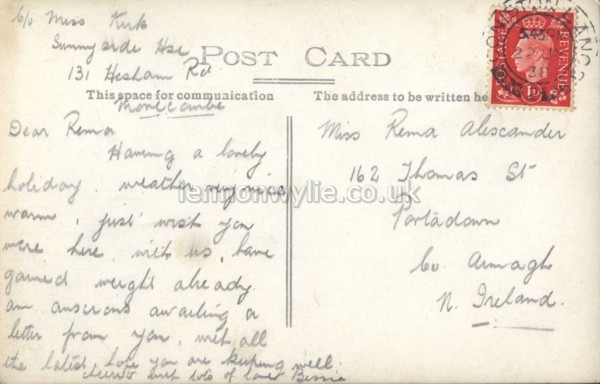 c/o Miss Kirk
Sunnyside Hse
131 Hesham Rd
Morecambe
POST CARD
This space for communication
The address to be written he
Dear Rema
Having a lovely
holiday. weather very nice
warm, just wish you
were here with us, have
gained weight already.
am anscrous awaiting a
letter from you, with all
the latest, hope you are keeping well.
cheerio with lots of love Bessie
Miss Rema Alexcander
162 Thomas St
Portadown
Co. Armagh
N. Ireland.
POSTAGE
REVENUE
lennonwylie.co.uk